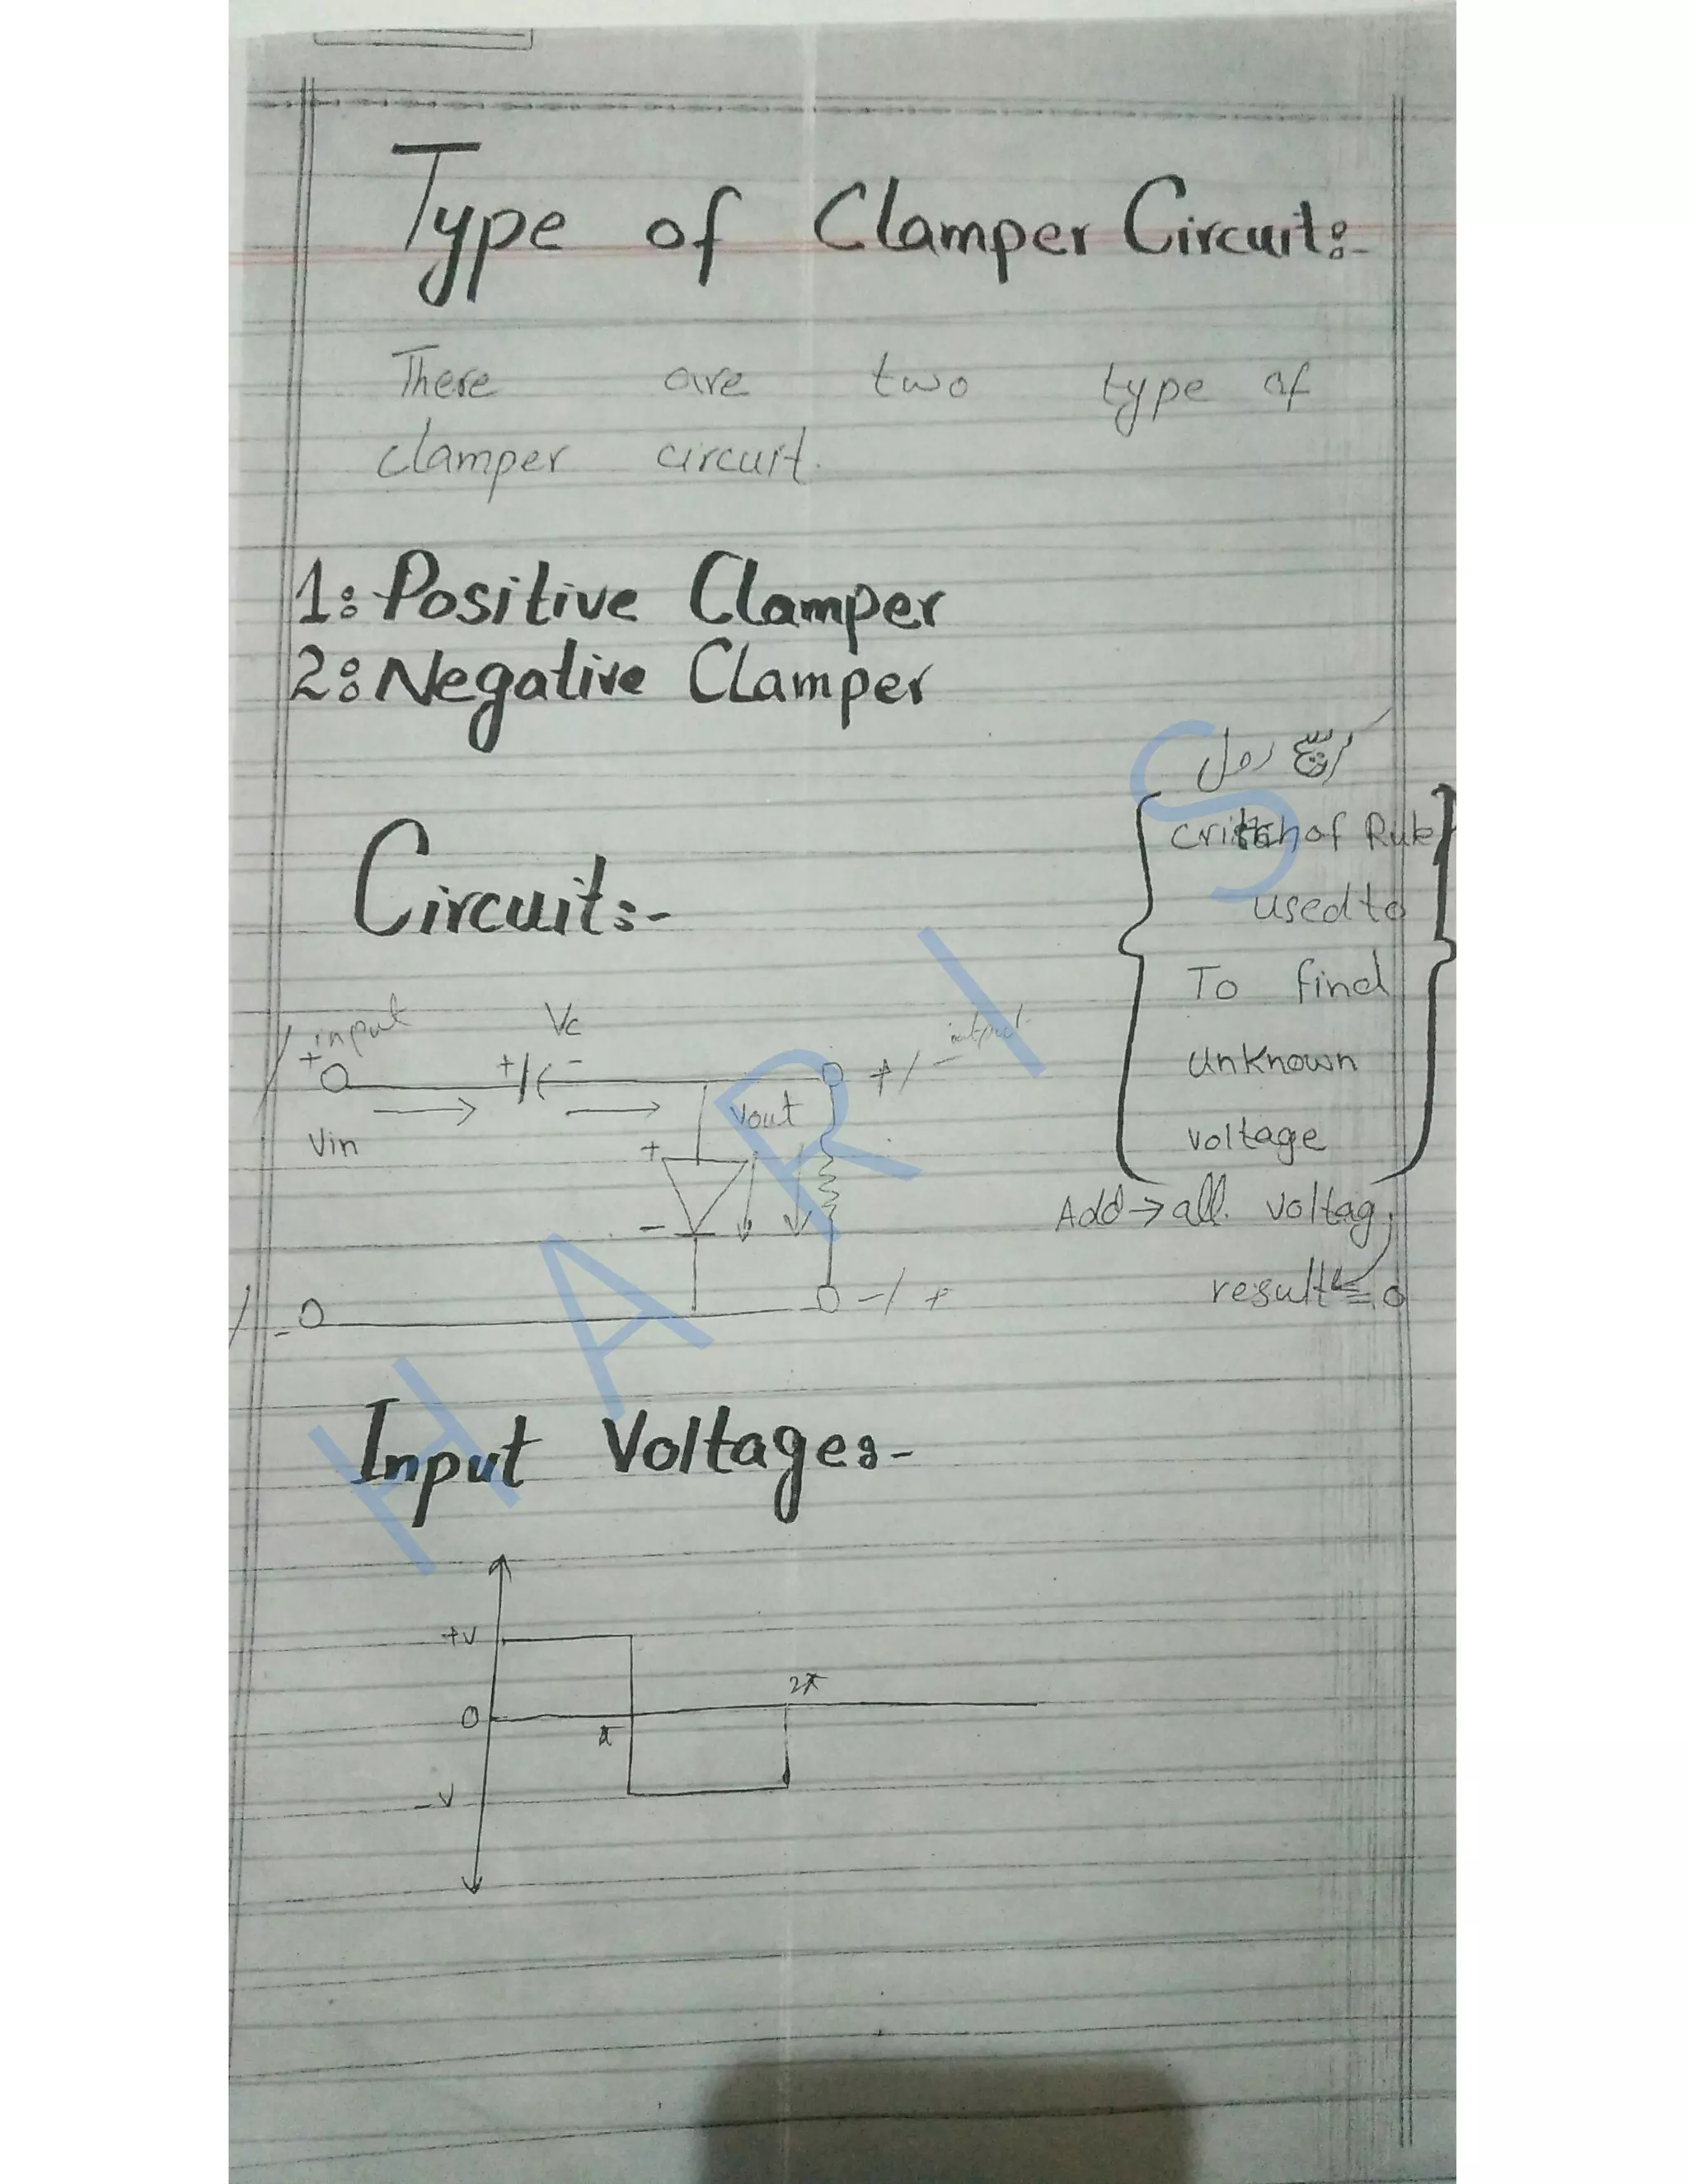 Type of Clamper Circuit:-
There are two type of
clamper circuit.
1: Positive Clamper
2: Negative Clamper
Circuit:-
used to
To find
unknown
voltage
Add → all. voltag
result = 0
input
Vc
output
+
+/-
+/-
Vin
Vout
+
-
-
-/+
Input Voltage:-
+V
0
π
2π
-V
HARIS